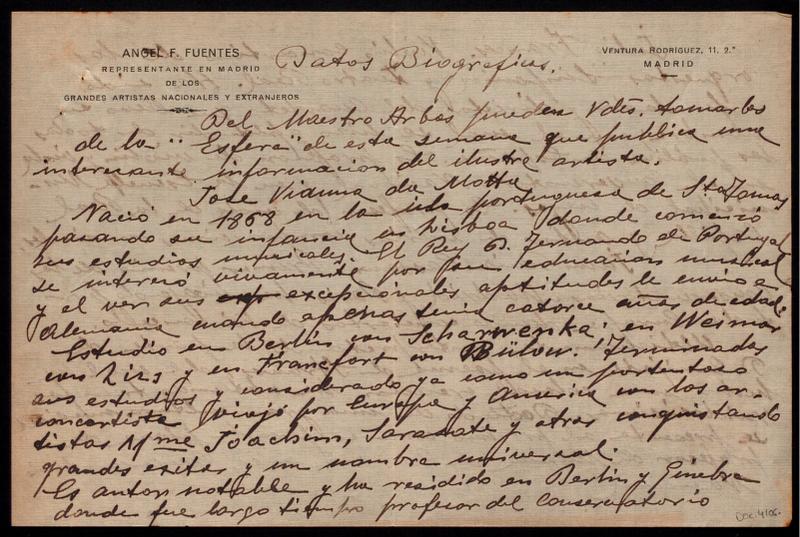 ANGEL F. FUENTES
REPRESENTANTE EN MADRID
DE LOS
GRANDES ARTISTAS NACIONALES Y EXTRANJEROS
VENTURA RODRÍGUEZ, 11, 2.°
MADRID
Datos Biograficos.
Del Maestro Arbos pueden Vdes. tomarlos
de la "Esfera" de esta semana que publica una
interesante informacion del ilustre artista.
Jose Vianna da Motta
Nació en 1868 en la isla portuguesa de Sto Tomas
pasando su infancia en Lisboa donde comenzó
sus estudios musicales. El Rey D. Fernando de Portugal
se interesó vivamente por su educacion musical
y el ver sus excepcionales aptitudes le envio a
Alemania cuando apenas tenia catorce años de edad.
Estudio en Berlin con Scharwenka; en Weimar
con Lizs y en Francfort con Bülow. Terminados
sus estudios y considerado ya como un portentoso
concertista viajó por Europa y America con los ar-
tistas Mme Joachim, Sarasate y otros conquistando
grandes exitos y un nombre universal.
Es autor notable y ha residido en Berlin y Ginebra
donde fue largo tiempo profesor del conservatorio
DOC. 4/06.